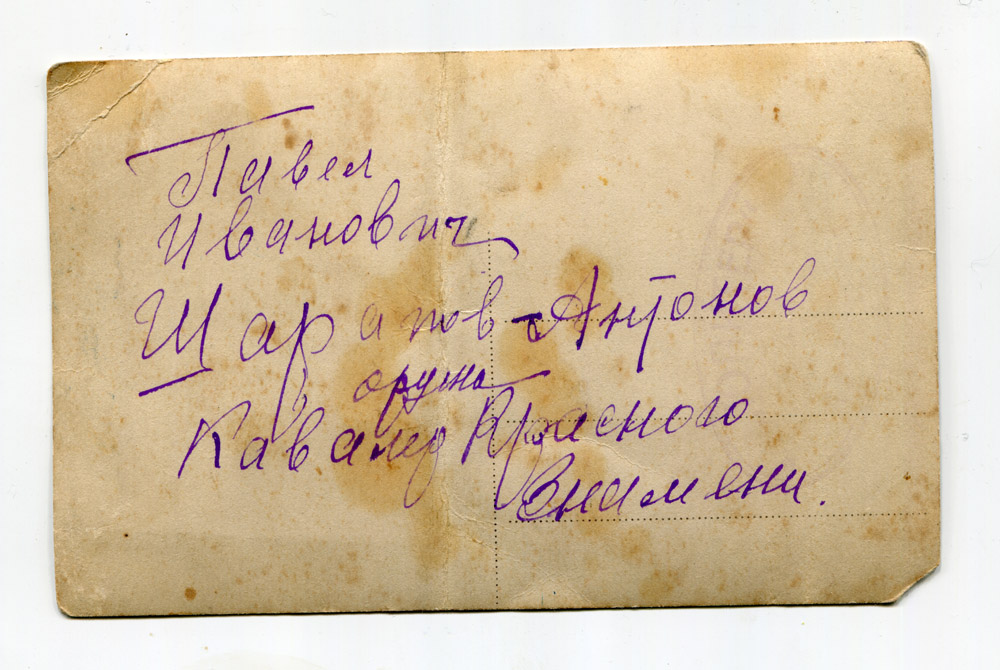 Павел
Иванович
Шарапов-Антонов
ордена
Кавалер Красного
Знамени.